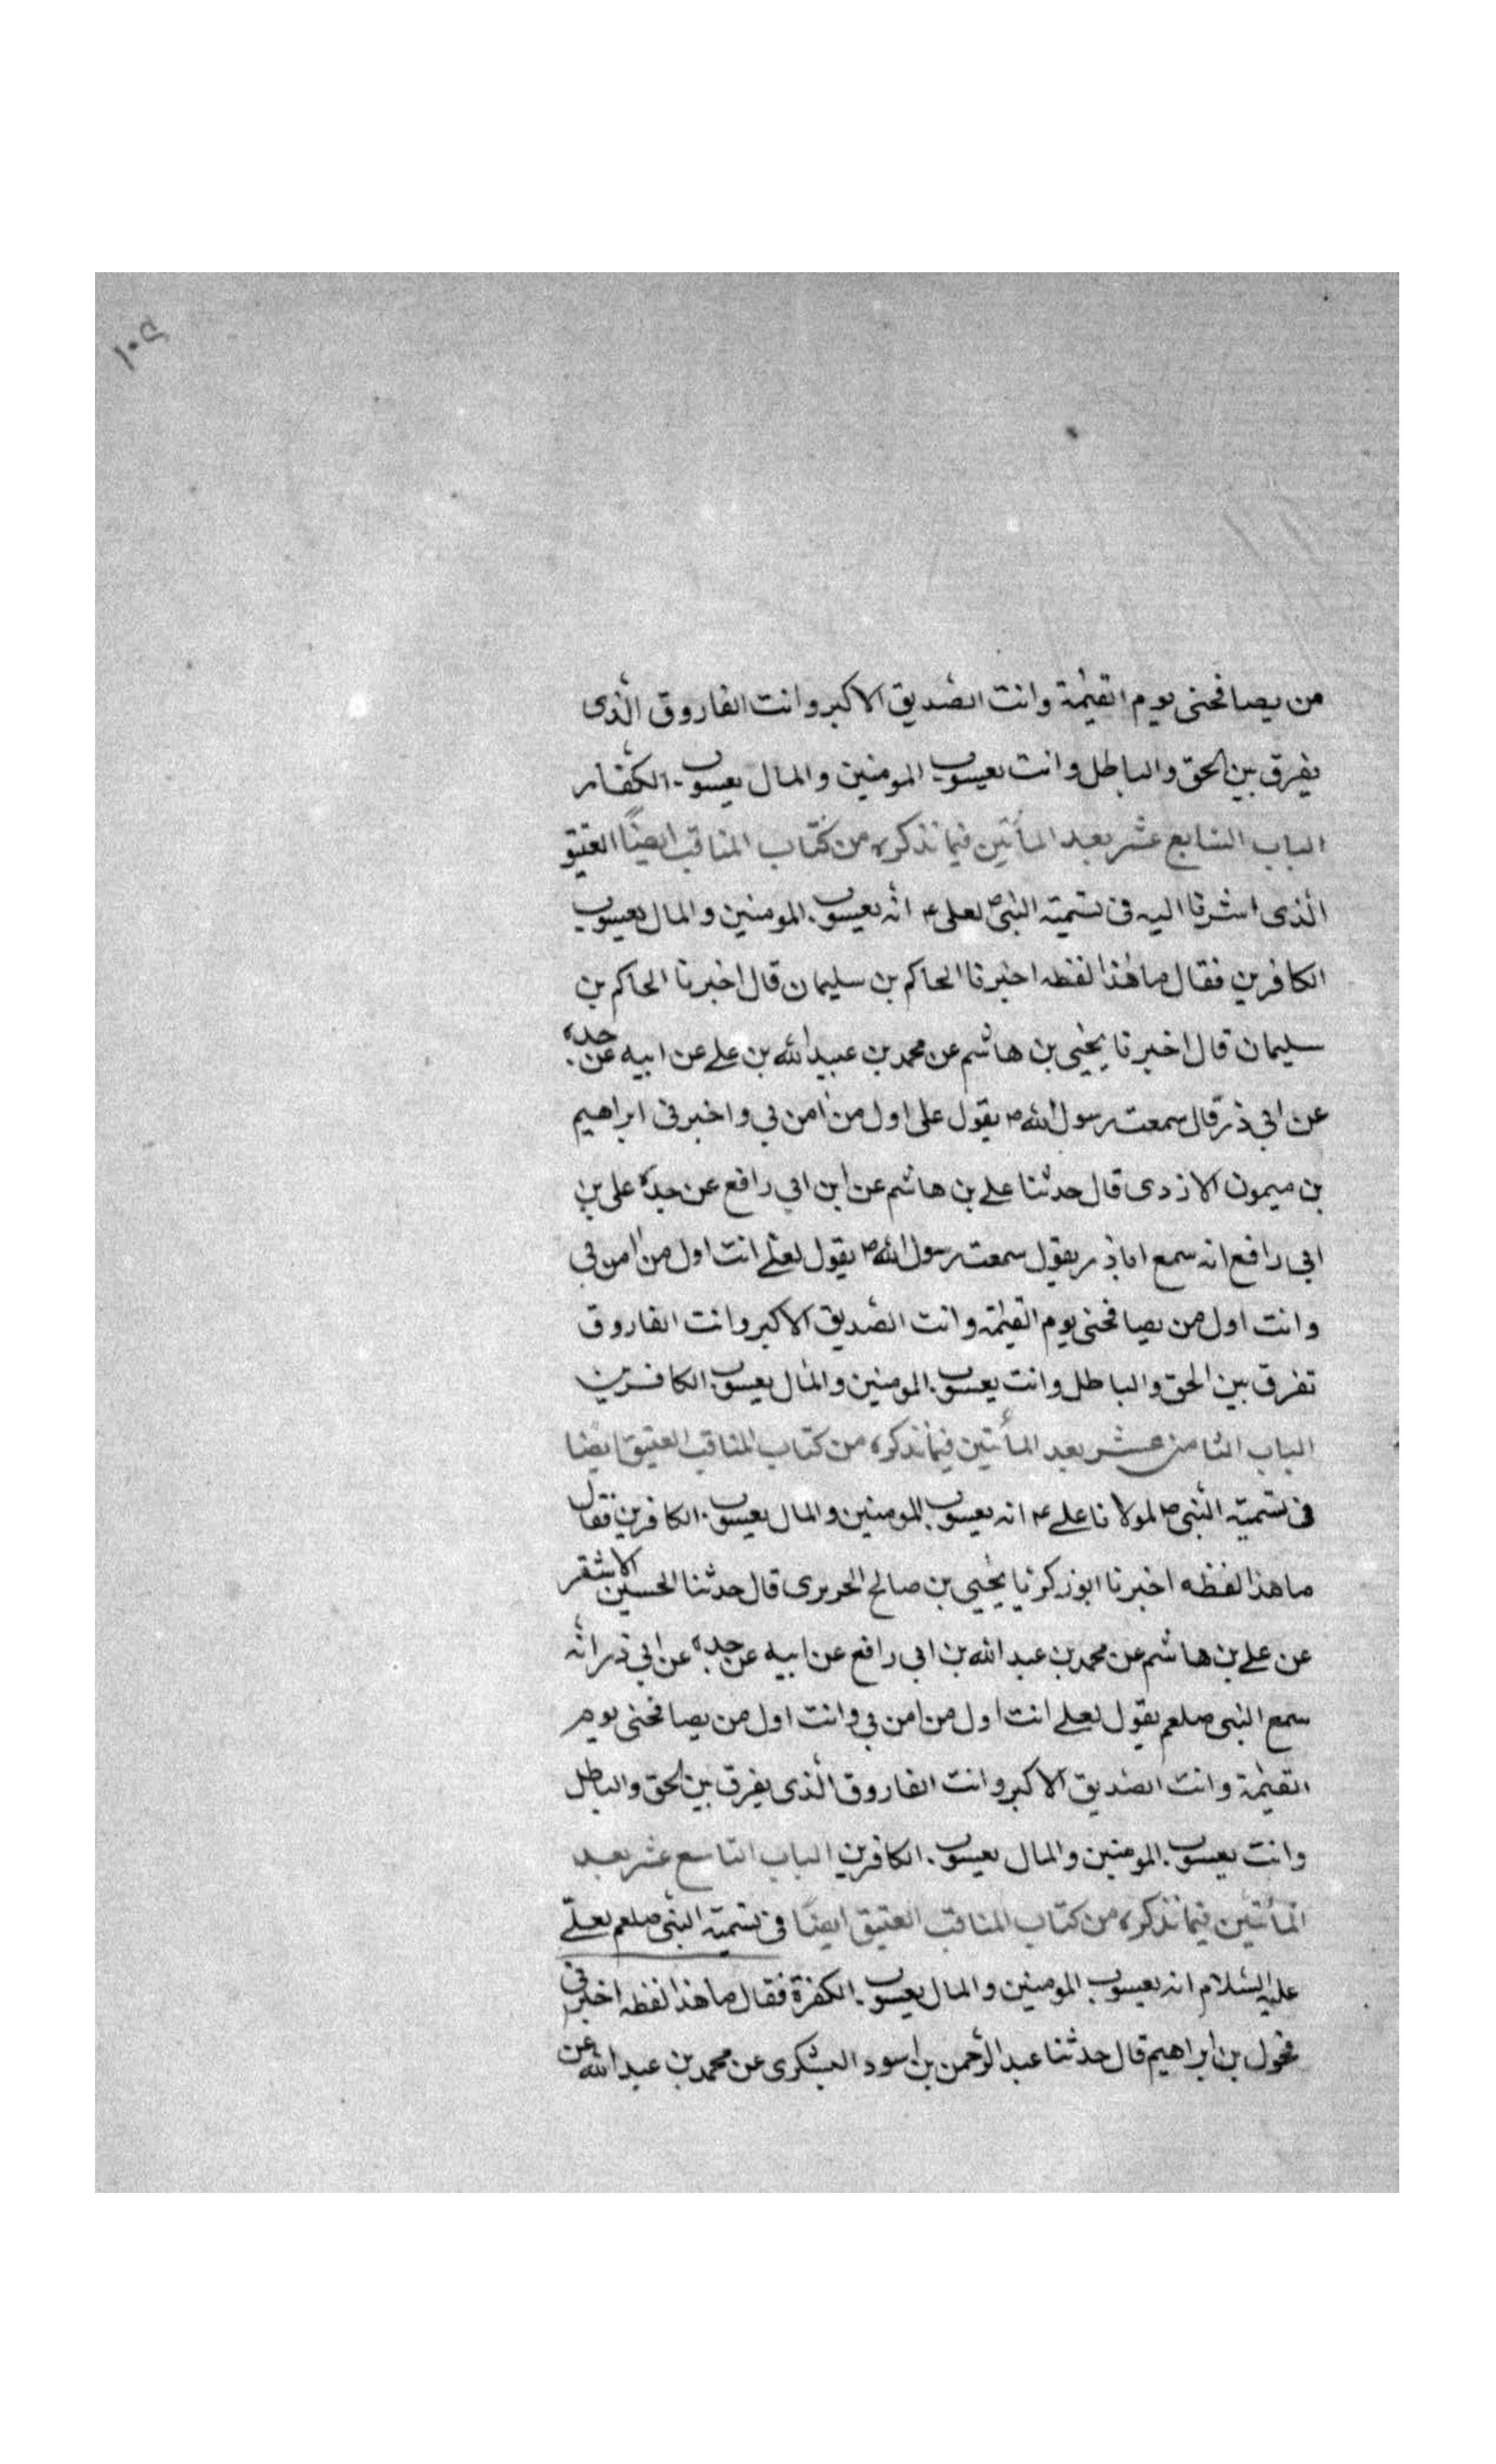 ١٠٩
من يصافحنى يوم القيٰمة وانت الصّديق الاكبر وانت الفاروق الّذى
يفرق بين الحق والباطل وانت يعسوب المومنين والمال يعسوب الكفّار
الباب السّابع عشر بعد المأتين فيما نذكره من كتاب المناقب ايضًا العتيق
الّذى اشرنا اليه فى تسمية النبىّ ص لعلى ع انّه يعسوب المومنين والمال يعسوب
الكافرين فقال ما هٰذا لفظه اخبرنا الحاكم بن سليمان قال اخبرنا الحاكم بن
سليمان قال اخبرنا يحيى بن هاشم عن محمد بن عبيد الله بن على عن ابيه عن جده
عن ابي ذر قال سمعت رسول الله ص يقول على اول من اٰمن بي واخبرنى ابراهيم
بن ميمون الازدى قال حدثنا على بن هاشم عن ابن ابي رافع عن جده على بن
ابي رافع انه سمع اباذر يقول سمعت رسول الله ص يقول لعلى انت اول من اٰمن بي
وانت اول من يصافحنى يوم القيٰمة وانت الصّديق الاكبر وانت الفاروق
تفرق بين الحق والباطل وانت يعسوب المومنين والمال يعسوب الكافرين
الباب الثامن عشر بعد المأتين فيما نذكره من كتاب المناقب العتيق ايضًا
فى تسمية النّبى ص لمولانا على ع انه يعسوب المومنين والمال يعسوب الكافرين فقال
ما هذا لفظه اخبرنا ابوزكريا يحيى بن صالح الحريرى قال حدثنا الحسين الاشقر
عن على بن هاشم عن محمد بن عبد الله بن ابي رافع عن ابيه عن جده عن ابي ذر انّه
سمع النبى صلعم يقول لعلى انت اول من اٰمن بي وانت اول من يصافحنى يوم
القيٰمة وانت الصّديق الاكبر وانت الفاروق الّذى يفرق بين الحق والباطل
وانت يعسوب المومنين والمال يعسوب الكافرين الباب التاسع عشر بعد
المأتين فيما نذكره من كتاب المناقب العتيق ايضًا فى تسمية النّبى صلعم لعلىّ
عليه السّلام انه يعسوب المومنين والمال يعسوب الكفرة فقال ما هذا لفظه اخبرنى
مخول بن ابراهيم قال حدثنا عبد الرّحمن بن اسود اليشكرى عن محمد بن عبد الله عن